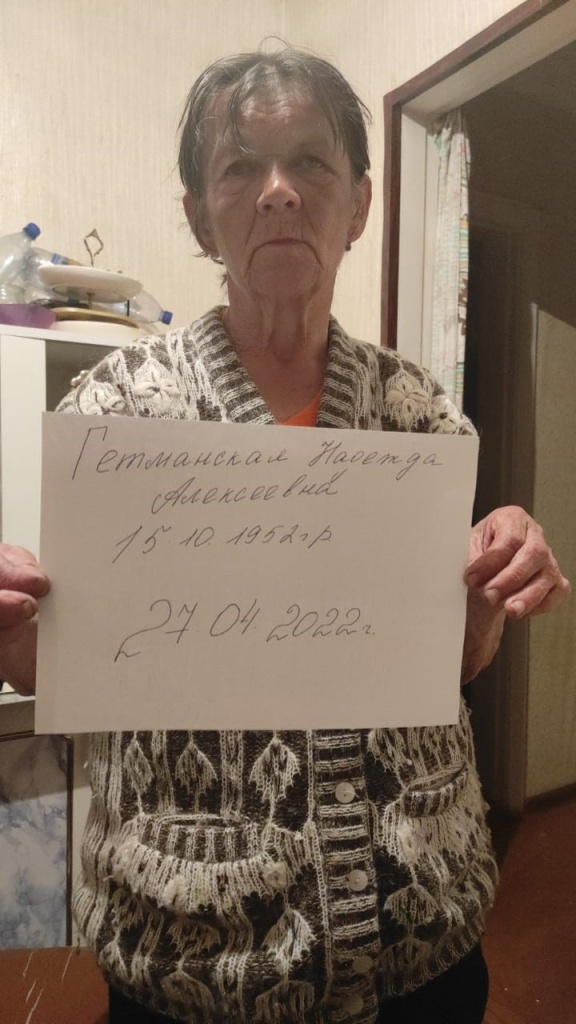 Гетманская Надежда
Алексеевна
15.10.1952г.р.
27.04.2022г.